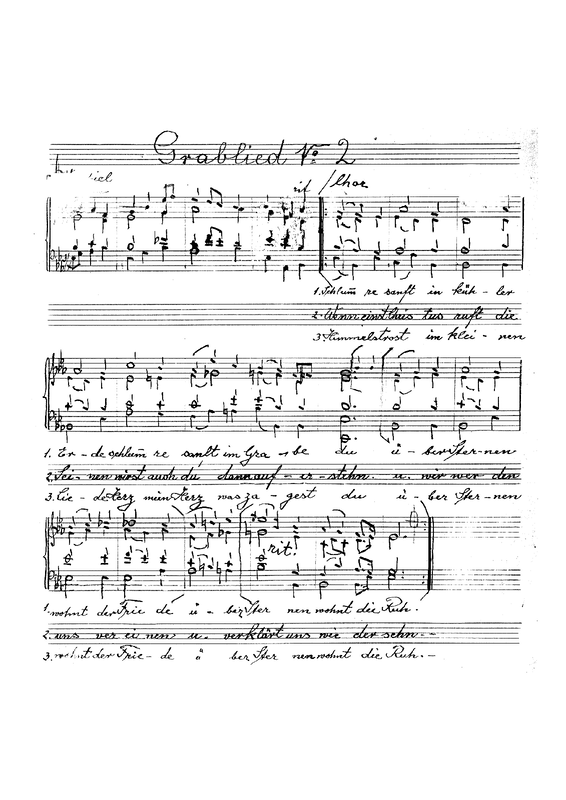 Grablied No 2
rit Chor
1. Schlum̄ re sanft in küh - ler
2. Wenn einst Chris tus ruft die
3. Himmelstrost im klei - nen
1. Er - de schlum̄ re sanft im Gra - be du ü - ber Ster - nen
2. Sei - nen wirst auch du dann auf - er - stehn. u. wir wer den
3. herz mein herz was za - gest du ü - ber Ster - nen
rit.
1. wohnt der Frie de ü - ber Ster nen wohnt die Ruh.
2. uns ver ei nen u. verklärt uns wie der sehn. -
3. wohnt der Frie - de ü ber Ster nen wohnt die Ruh. -